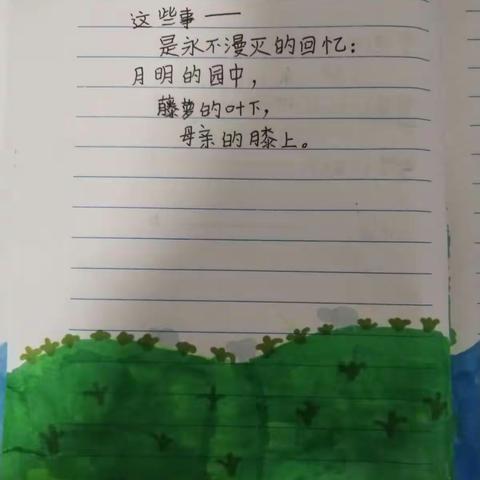 这些事——
是永不漫灭的回忆：
月明的园中，
藤萝的叶下，
母亲的膝上。